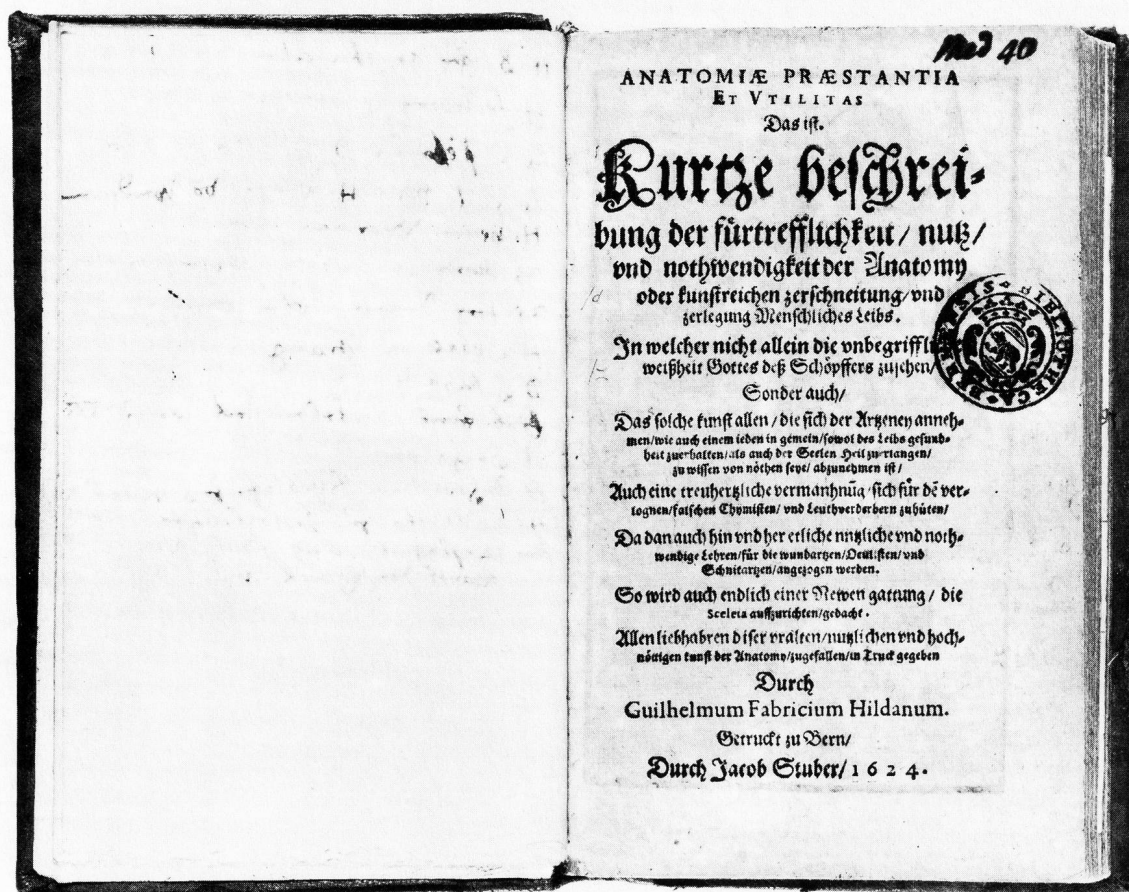 Med 40
ANATOMIÆ PRÆSTANTIA
ET VTILITAS
Das ist.
Kurtze beschrei-
bung der fürtrefflichkeit/ nutz/
vnd nothwendigkeit der Anatomy
oder kunstreichen zerschneitung/ vnd
zerlegung Menschliches Leibs.
In welcher nicht allein die vnbegriffli
weißheit Gottes deß Schöpffers zusehen/
Sonder auch/
Das solche kunst allen/ die sich der Artzeney anneh-
men/ wie auch einem ieden in gemein/ sowol des Leibs gesund-
heit zuerhalten/ als auch der Seelen Heil zuerlangen/
zu wissen von nöthen seye/ abzunehmen ist/
Auch eine treuhertzliche vermanhnūg sich für dē ver-
lognen/ falschen Chymisten/ vnd Leuthverderbern zuhüten/
Da dan auch hin vnd her etliche nutzliche vnd noth-
wendige Lehren/ für die wundartzen/ Oculisten/ vnd
Schnitartzen/ angezogen werden.
So wird auch endlich einer Newen gattung/ die
Sceleta auffzurichten/ gedacht.
Allen liebhabren diser vralten/ nutzlichen vnd hoch-
nöttigen kunst der Anatomy/ zugefallen/ in Truck gegeben
Durch
Guilhelmum Fabricium Hildanum.
Getruckt zu Bern/
Durch Jacob Stuber/ 1624.
BIBLIOTHECA BERNENSIS